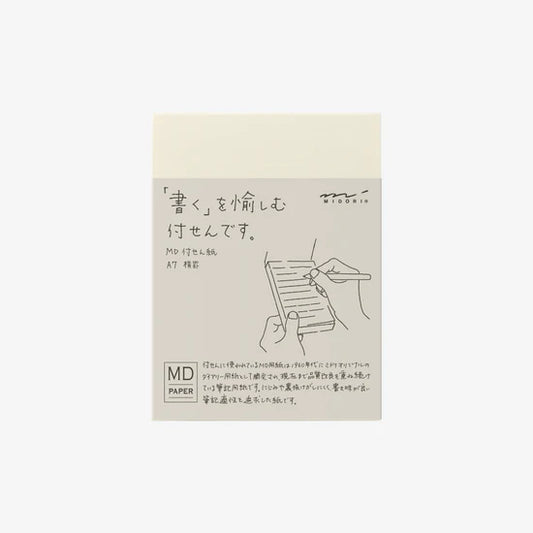 「書く」を愉しむ
付せんです。
MIDORI®
MD 付せん紙
A7 横罫
MD
PAPER
付せんに使われているMD用紙は、1960年代にミドリオリジナルの
ダイアリー用紙として開発され、現在まで品質改良を重ね続け
ている筆記用紙です。にじみや裏抜けがしにくく、書き味が良い
筆記適性を追求した紙です。